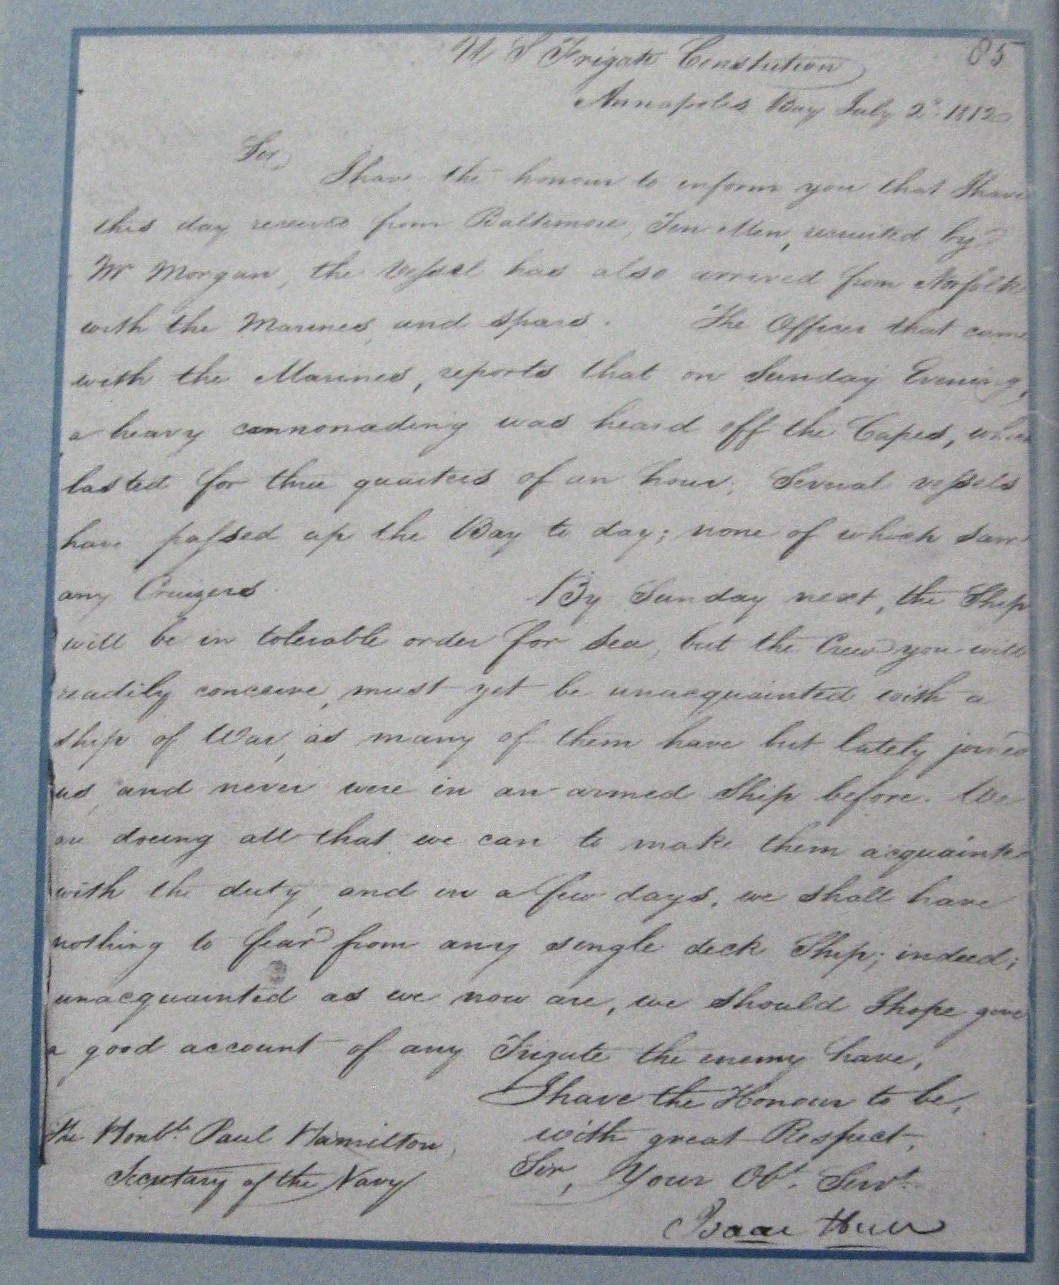 85
U S Frigate Constution
Annapolis Bay July 2d 1812
Sir,
I have the honour to inform you that I have
this day received from Baltimore, Ten Men, recruited by
Mr Morgan, the vessel has also arrived from Norfolk
with the Marines, and spars. The Officer that came
with the Marines, reports that on Sunday Evening,
a heavy cannonading was heard off the Capes, which
lasted for three quarters of an hour; Several vessels
have passed up the Bay to day; none of which saw
any Cruizers. By Sunday next, the Ship
will be in tolerable order for Sea, but the Crew you will
readily conceive, must yet be unacquainted with a
Ship of War, as many of them have but lately joined
us, and never were in an armed Ship before. We
are doeing all that we can to make them acquainted
with the duty, and in a few days, we shall have
nothing to fear from any single deck Ship; indeed;
unacquainted as we now are, we should I hope give
a good account of any Frigate the enemy have.
I have the Honour to be,
with great Respect,
The Honble Paul Hamilton,
Secretary of the Navy
Sir, Your Obt. Servt.
Isaac Hull